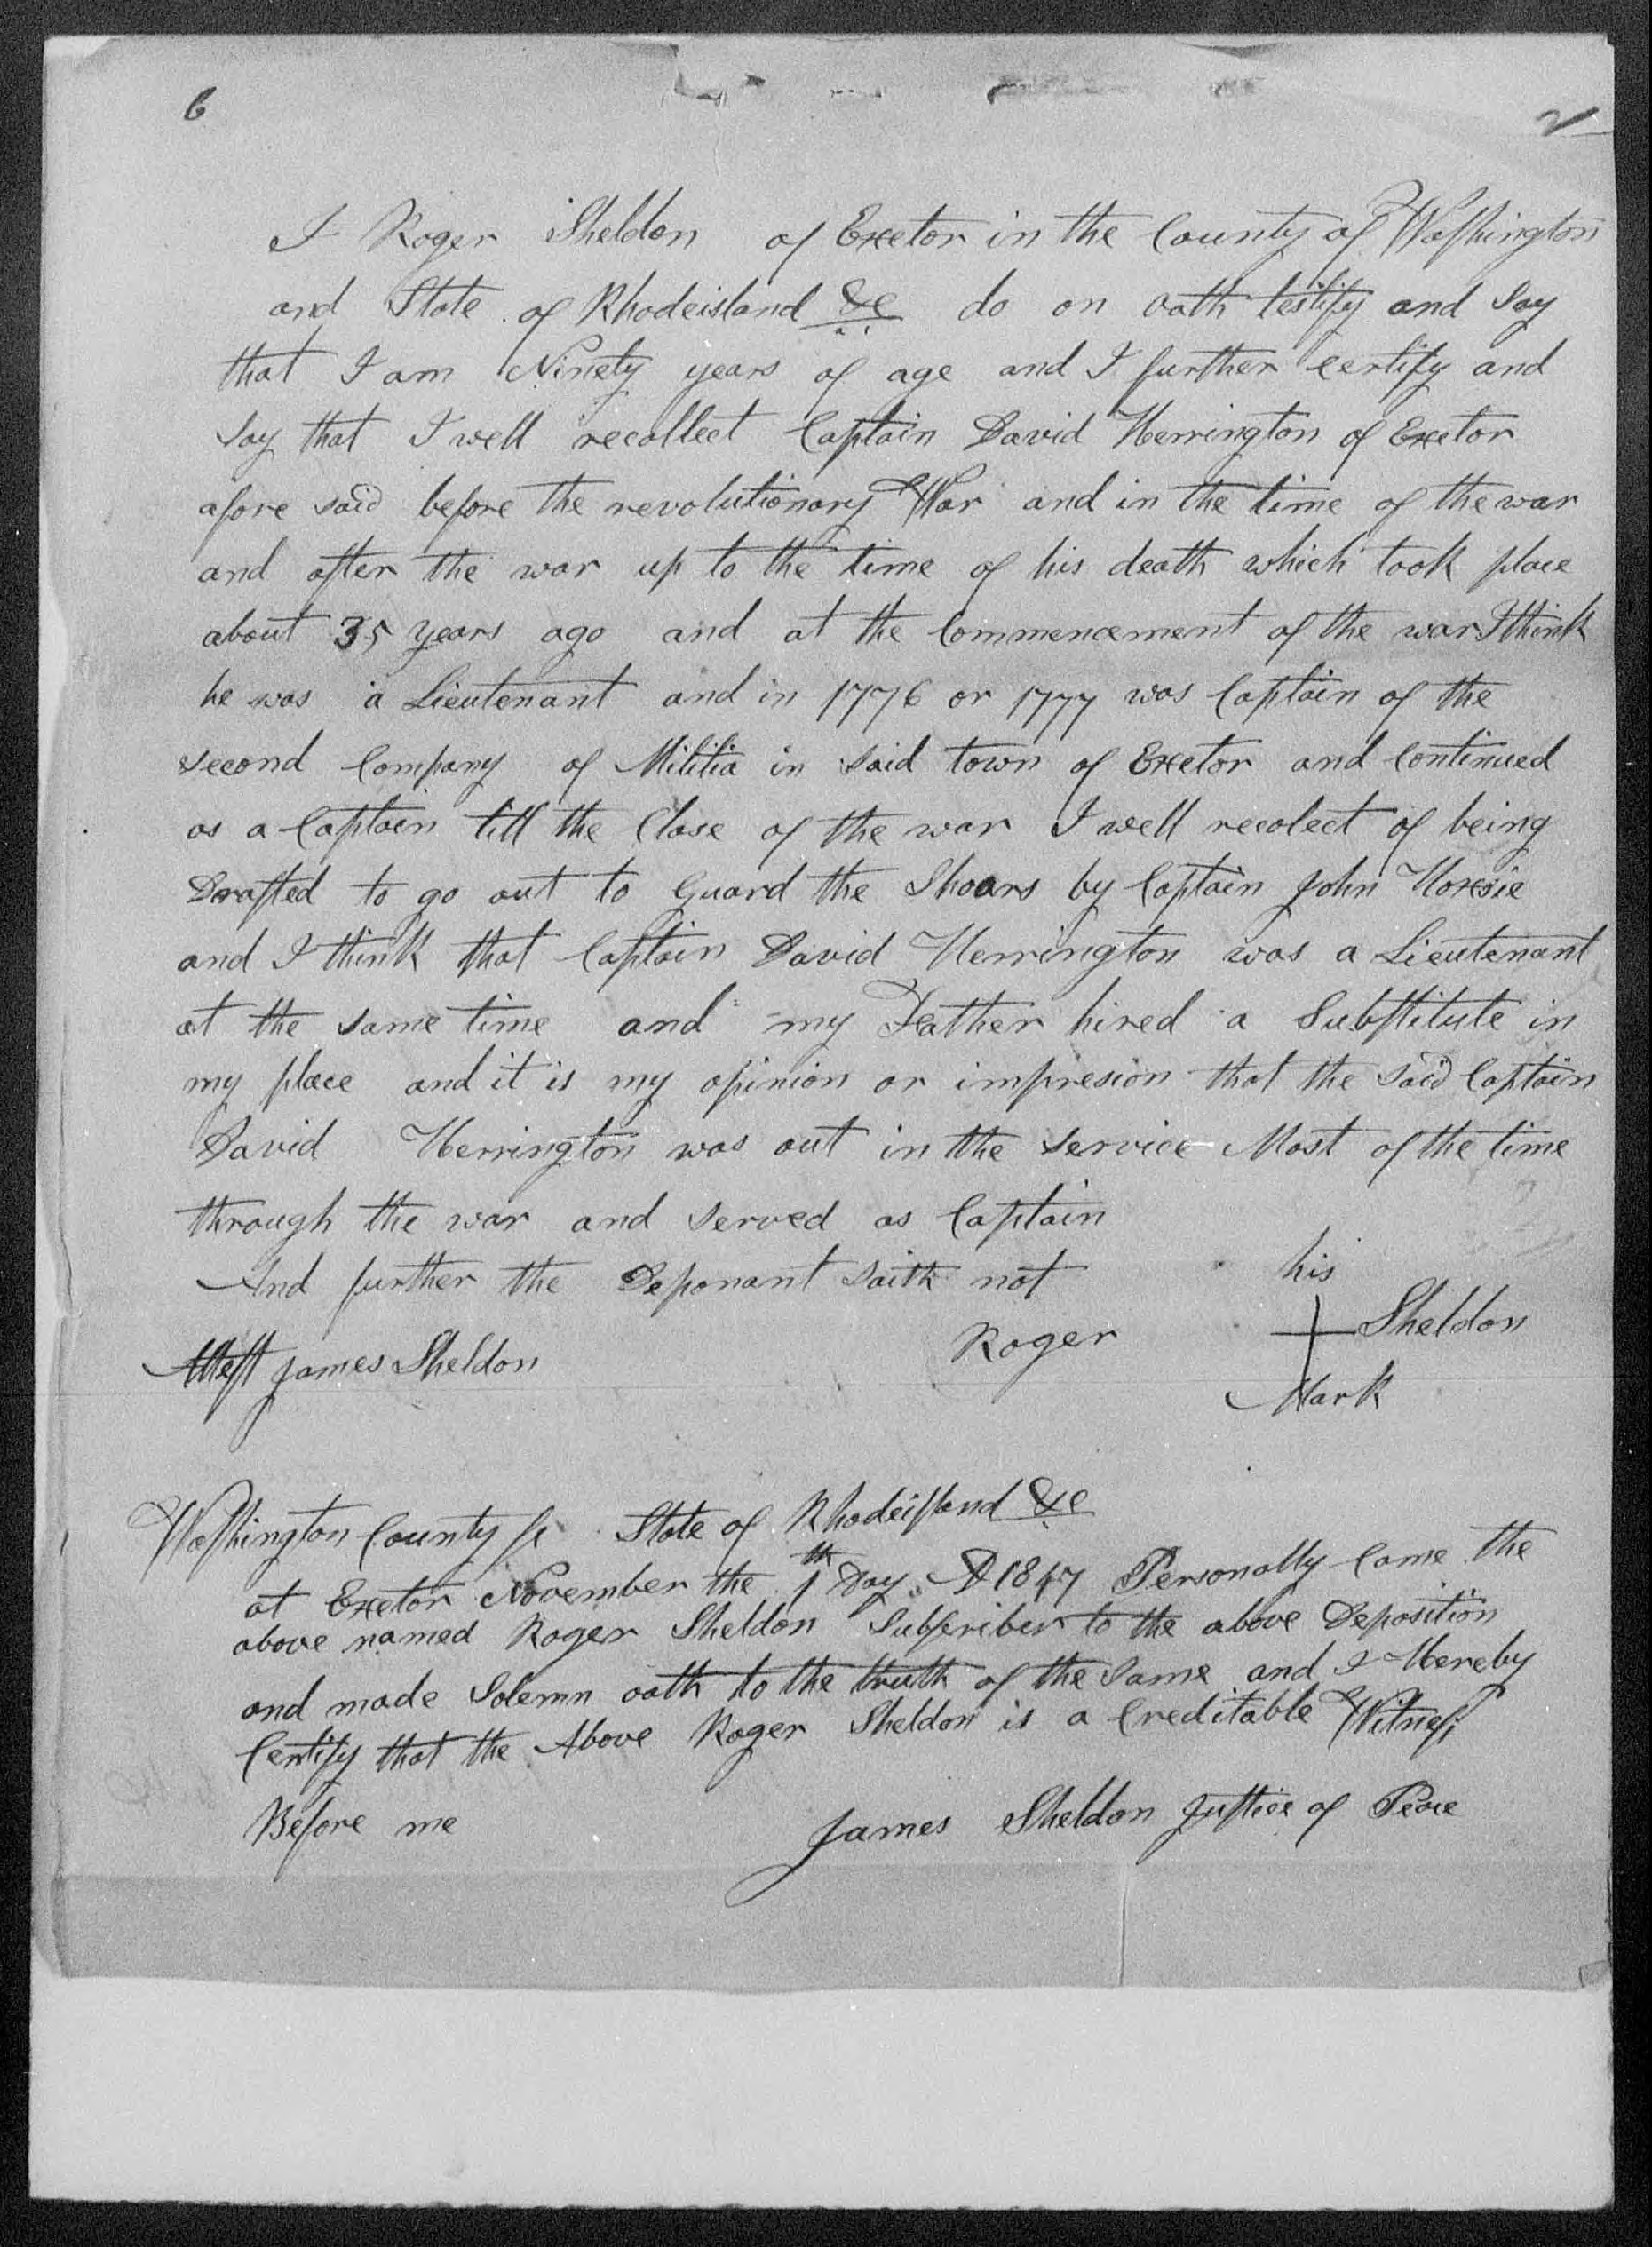 6
2
I Roger Sheldon of Exetor in the County of Washington
and State of Rhodeisland &c do on oath testify and Say
that I am Ninety years of age and I further certify and
Say that I well recollect Captain David Herrington of Exetor
afore said before the revolutionary War and in the time of the war
and after the war up to the time of his death which took place
about 35 years ago and at the Commencement of the war I think
he was a Lieutenant and in 1776 or 1777 was Captain of the
second Company of Militia in said town of Exetor and Continued
as a Captain till the Close of the war I well recolect of being
Drafted to go out to Guard the Shoars by Captain John Hoxsie
and I think that Captain David Herrington was a Lieutenant
at the same time and my Father hired a Substitute in
my place and it is my opinion or impresion that the said Captain
David Herrington was out in the service Most of the time
through the war and served as Captain
And further the Deponant saith not
his
Attest James Sheldon Roger + Sheldon
Mark
Washington County ss State of Rhodeisland &c
at Exetor November the 1th Day AD 1847 Personally Came the
above named Roger Sheldon Subscriber to the above Deposition
and made Solemn oath to the truth of the Same and I Hereby
Certify that the Above Roger Sheldon is a Creditable Witness
Before me James Sheldon Justice of Peace